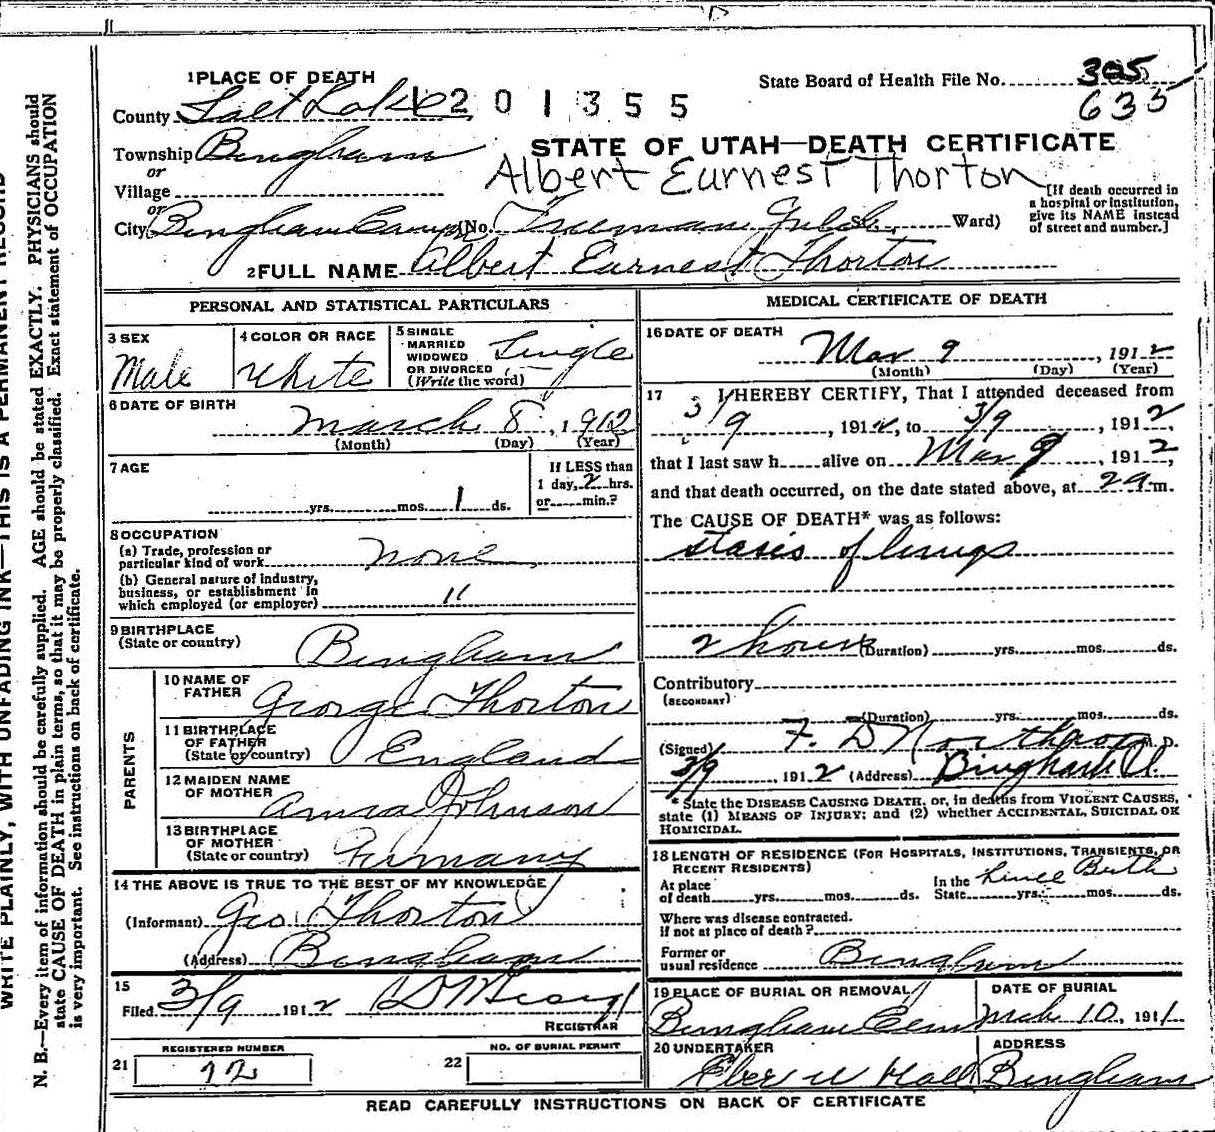 1 PLACE OF DEATH
State Board of Health File No. 305
635
County Salt Lake 1201355
Township Bingham
STATE OF UTAH—DEATH CERTIFICATE
or
Village
Albert Eurnest Thorton
[If death occurred in a hospital or institution, give its NAME instead of street and number.]
or
City Bingham Canyon (No. Freeman Gulch St. Ward)
2 FULL NAME Albert Eurnest Thorton
PERSONAL AND STATISTICAL PARTICULARS
3 SEX
Male
4 COLOR OR RACE
White
5 SINGLE MARRIED WIDOWED OR DIVORCED (Write the word)
Single
6 DATE OF BIRTH
March 8, 1912
(Month) (Day) (Year)
7 AGE
yrs. mos. 1 ds.
If LESS than
1 day, 2 hrs.
or min.?
8 OCCUPATION
(a) Trade, profession or
particular kind of work none
(b) General nature of industry,
business, or establishment in
which employed (or employer) "
9 BIRTHPLACE
(State or country) Bingham
PARENTS
10 NAME OF
FATHER George Thorton
11 BIRTHPLACE
OF FATHER
(State or country) England
12 MAIDEN NAME
OF MOTHER Anna Johnson
13 BIRTHPLACE
OF MOTHER
(State or country) Germany
14 THE ABOVE IS TRUE TO THE BEST OF MY KNOWLEDGE
(Informant) Geo Thorton
(Address) Bingham
15
Filed 3/9 1912
REGISTRAR
REGISTERED NUMBER
21 12
NO. OF BURIAL PERMIT
22
MEDICAL CERTIFICATE OF DEATH
16 DATE OF DEATH
Mar 9, 1912
(Month) (Day) (Year)
17 I HEREBY CERTIFY, That I attended deceased from
3/9, 1912, to 3/9, 1912,
that I last saw h alive on Mar 9, 1912,
and that death occurred, on the date stated above, at 2 a.m.
The CAUSE OF DEATH* was as follows:
stasis of lungs
2 hours (Duration) yrs. mos. ds.
Contributory
(SECONDARY)
(Duration) yrs. mos. ds.
(Signed) F. D. M.D.
3/9, 1912 (Address) Bingham U.
* State the DISEASE CAUSING DEATH, or, in deaths from VIOLENT CAUSES,
state (1) MEANS OF INJURY; and (2) whether ACCIDENTAL, SUICIDAL OR
HOMICIDAL.
18 LENGTH OF RESIDENCE (FOR HOSPITALS, INSTITUTIONS, TRANSIENTS, OR
RECENT RESIDENTS)
At place
of death yrs. mos. ds.
In the
State yrs. mos. ds.
since Birth
Where was disease contracted.
If not at place of death?
Former or
usual residence Bingham
19 PLACE OF BURIAL OR REMOVAL
Bingham Cem
DATE OF BURIAL
Mch 10, 1911
20 UNDERTAKER
Eber W Hall
ADDRESS
Bingham
READ CAREFULLY INSTRUCTIONS ON BACK OF CERTIFICATE
WRITE PLAINLY, WITH UNFADING INK—THIS IS A PERMANENT RECORD
N. B.—Every item of information should be carefully supplied. AGE should be stated EXACTLY. PHYSICIANS should
state CAUSE OF DEATH in plain terms, so that it may be properly classified. Exact statement of OCCUPATION
is very important. See instructions on back of certificate.